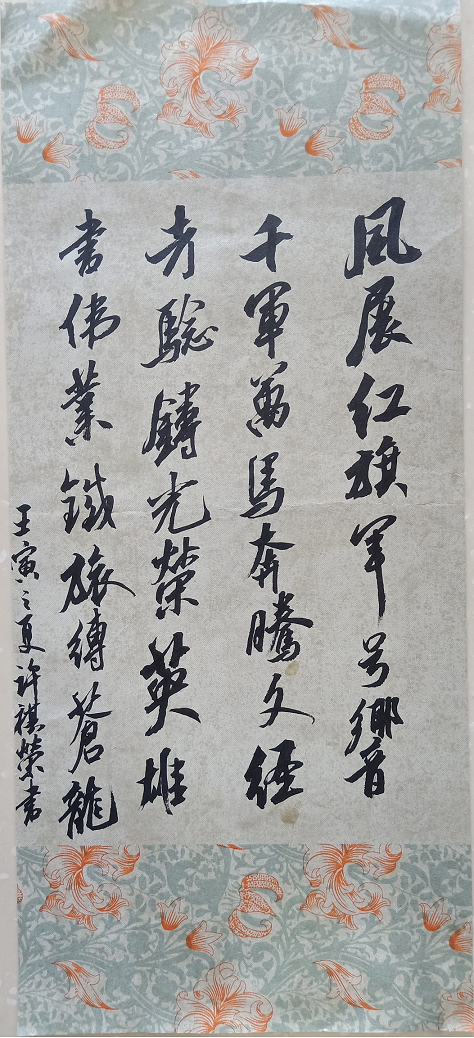 風展红旗军号響
千軍萬馬奔騰久經
考驗鑄光榮英雄
書偉業鐵旅縛蒼龍
壬寅之夏许祺榮書